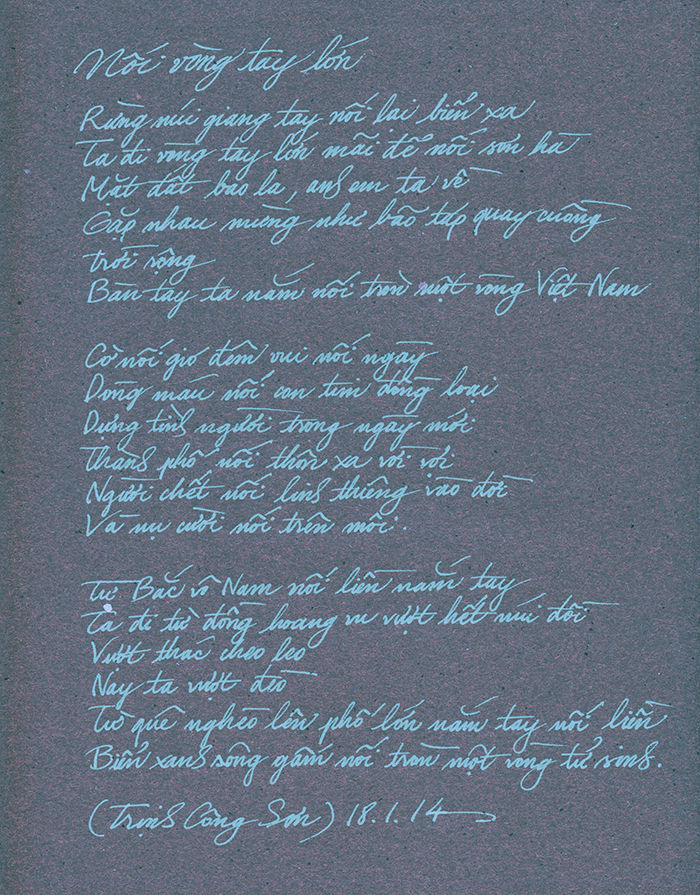 Nối vòng tay lớn
Rừng núi giang tay nối lại biển xa
Ta đi vòng tay lớn mãi để nối sơn hà
Mặt đất bao la, anh em ta về
Gặp nhau mừng như bão táp quay cuồng
trời rộng
Bàn tay ta nắm nối tròn một vòng Việt Nam
Cờ nối gió đêm vui nối ngày
Dòng máu nối con tim đồng loại
Dựng tình người trong ngày mới
Thành phố nối thôn xa vời vợi
Người chết nối linh thiêng vào đời
Và nụ cười nối trên môi.
Từ Bắc vô Nam nối liền nắm tay
Ta đi từ đồng hoang vu vượt hết núi đồi
Vượt thác cheo leo
Nay ta vượt đèo
Từ quê nghèo lên phố lớn nắm tay nối liền
Biển xanh sông gấm nối tròn một vòng tử sinh.
(Trịnh Công Sơn) 18.1.14